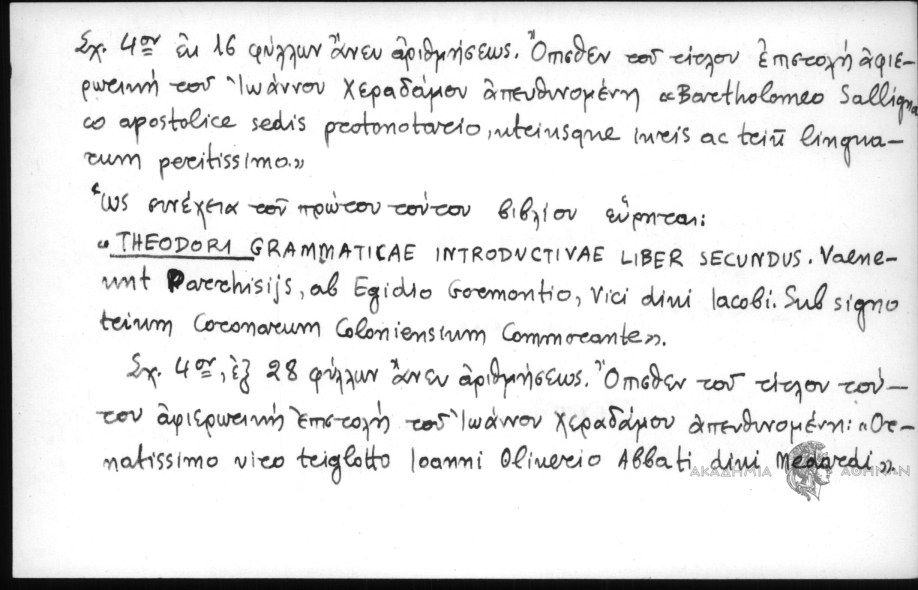 Σχ. 4ον ἐκ 16 φύλλων ἄνευ ἀριθμήσεως. Ὄπισθεν τοῦ τίτλου ἐπιστολή ἀφιε-
ρωτική τοῦ Ἰωάννου Χεραδάμου ἀπευθυνομένη «Bartholomeo Salligna
co apostolice sedis protonotario, utriusque iuris ac triũ lingua-
rum peritissimo.»
Ὡς συνέχεια τοῦ πρώτου τούτου βιβλίου εὕρηται:
«THEODORI GRAMMATICAE INTRODVCTIVAE LIBER SECUNDUS. Vaene-
unt Parrhisijs, ab Egidio Gormontio, Vici divi Iacobi. Sub signo
trium Coronarum Coloniensium Commorante».
Σχ. 4ον, ἐξ 28 φύλλων ἄνευ ἀριθμήσεως. Ὄπισθεν τοῦ τίτλου τού-
του ἀφιερωτική ἐπιστολή τοῦ Ἰωάννου Χεραδάμου ἀπευθυνομένη: «Or-
natissimo viro triglotto Ioanni Oliverio Abbati divi Medardi».
ΑΚΑΔΗΜΙΑ ΑΘΗΝΩΝ